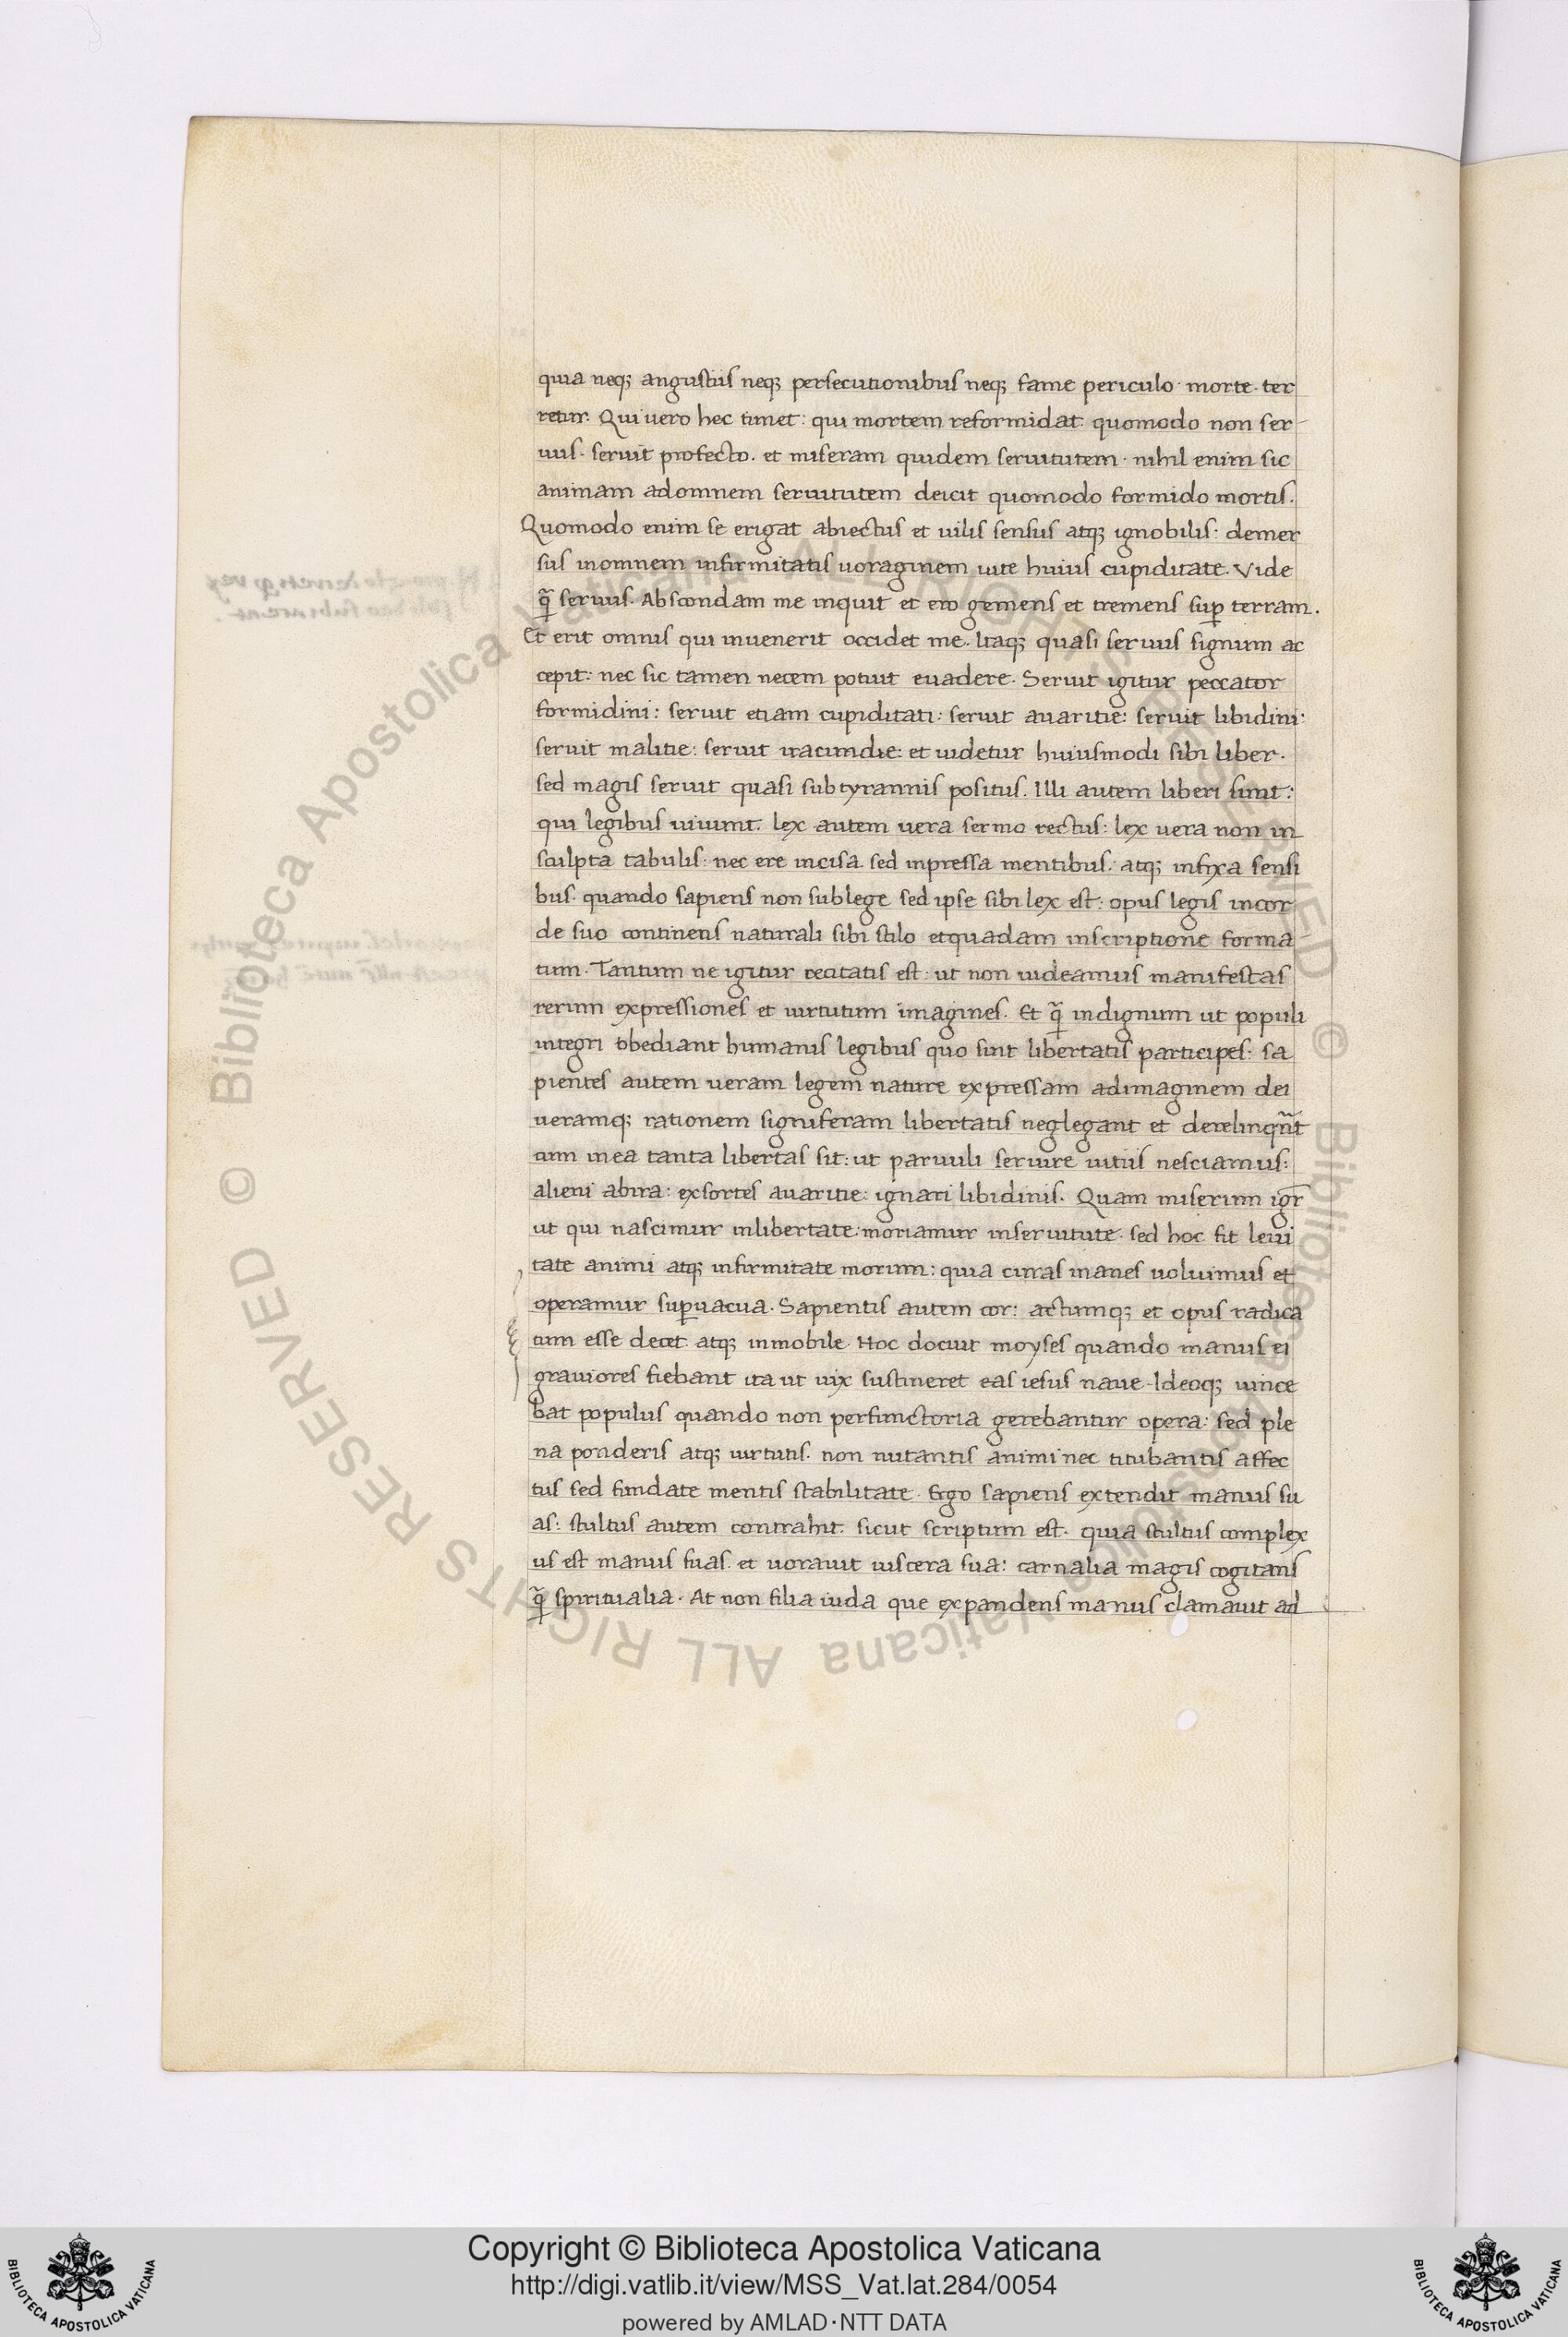 quia neq; angustiis neq; persecutionibus neq; fame periculo · morte · ter
retur. Qui vero hec timet: qui mortem reformidat. quomodo non ser-
uus. seruit profecto. et miseram quidem seruitutem · nihil enim sic
animam adomnem seruitutem deicit quomodo formido mortis.
Quomodo enim se erigat abiectus et uilis sensus atq; ignobilis: demer
sus inomnem infirmitatis uoraginem uite huius cupiditate. Vide
q̃ seruus. Abscondam me inquit et ero gemens et tremens sup̱ terram.
Et erit omnis qui inuenerit occidet me. Itaq; quasi seruus signum ac
cepit: nec sic tamen necem potuit euadere. Seruit igitur peccator
formidini: seruit etiam cupiditati: seruit auaritie: seruit libidini:
seruit malitie: seruit iracundie: et uidetur huiusmodi sibi liber.
sed magis seruit quasi subtyrannis positus. Illi autem liberi sunt:
qui legibus uiuunt. lex autem uera sermo rectus: lex uera non in
sculpta tabulis: nec ere incisa. sed inpressa mentibus. atq; infixa sensi
bus. quando sapiens non sublege sed ipse sibi lex est: opus legis incor
de suo continens naturali sibi stilo etquadam inscriptione forma
tum. Tantum ne igitur cecitatis est: ut non uideamus manifestas
rerum expressiones et uirtutum imagines. Et q̃ indignum ut populi
integri obediant humanis legibus quo sint libertatis participes: sa
pientes autem ueram legem nature expressam adimaginem dei
ueramq; rationem signiferam libertatis neglegant et derelinqũt
cum inea tanta libertas sit: ut paruuli seruire uitiis nesciamus:
alieni abira: exsortes auaritie: ignari libidinis. Quam miserum igr̃
ut qui nascimur inlibertate: moriamur inseruitute. sed hoc fit leui
tate animi atq; infirmitate morum: quia curas inanes uoluimus et
operamur sup̱uacua. Sapientis autem cor: actumq; et opus radica
tum esse decet. atq; inmobile. Hoc docuit moyses quando manus ei
grauiores fiebant ita ut uix sustineret eas iesus naue. Ideoq; uince
bat populus quando non perfunctoria gerebantur opera: sed ple
na ponderis atq; uirtutis. non nutantis animi nec titubantis affec
tus sed fundate mentis stabilitate. Ergo sapiens extendit manus su
as: stultus autem contrahit. sicut scriptum est. quia stultus complex
us est manus suas. et uorauit uiscera sua: carnalia magis cogitans
q̃ spiritualia. At non filia iuda que expandens manus clamauit ad
© Biblioteca Apostolica Vaticana ALL RIGHTS RESERVED
© Biblioteca Apostolica Vaticana ALL RIGHTS RESERVED
Copyright © Biblioteca Apostolica Vaticana
http://digi.vatlib.it/view/MSS_Vat.lat.284/0054
powered by AMLAD·NTT DATA
BIBLIOTECA APOSTOLICA VATICANA
BIBLIOTECA APOSTOLICA VATICANA